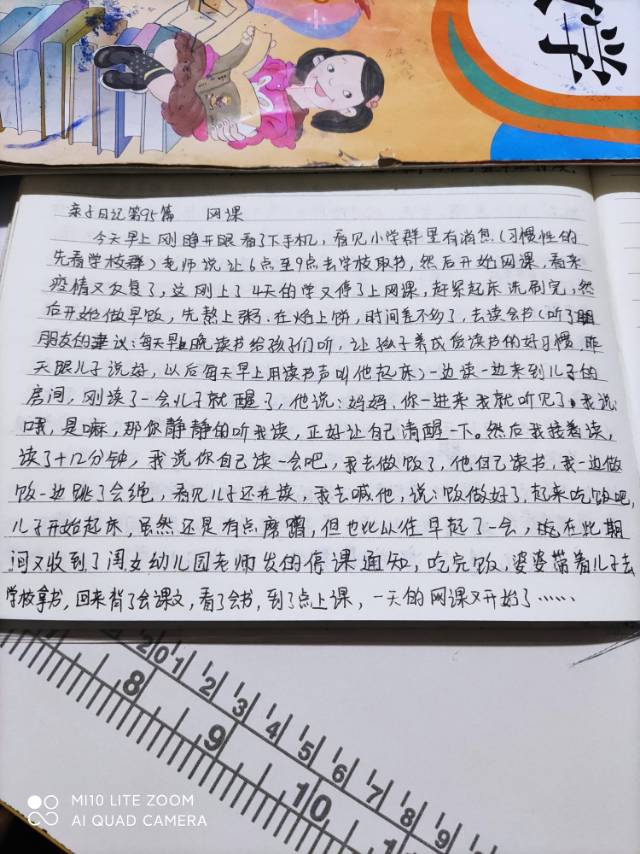 数学
亲子日记第95篇 网课
今天早上刚睁开眼看了下手机，看见小学群里有消息（习惯性的
先看学校群）老师说让6点至9点去学校取书，然后开始网课，看来
疫情又反复了，这刚上了4天的学又停了上网课，赶紧起床洗刷完，然
后开始做早饭，先熬上粥，在烙上饼，时间差不多了，去读会书（听了
朋友的建议：每天早晚读书给孩子们听，让孩子养成后读书的好习惯，昨
天跟儿子说好，以后每天早上用读书声叫他起床）一边读一边来到儿子的
房间，刚读了一会儿子就醒了，他说：妈妈，你一进来我就听见了。我说：
哦，是嘛，那你静静的听我读，正好让自己清醒一下。然后我接着读，
读了十几分钟，我说你自己读一会吧，我去做饭了，他自己读书，我一边做
饭一边跳了会绳，看见儿子还在读，我去喊他，说：饭做好了，起来吃饭吧，
儿子开始起床，虽然还是有点磨蹭，但也比以往早起了一会，在此期
间又收到了闺女幼儿园老师发的停课通知，吃完饭，婆婆带着儿子去
学校拿书，回来背了会课文，看了会书，到了点上课，一天的网课又开始了……
20 1 2 3 4 5 6 7 8 9
8 9 10
MI 10 LITE ZOOM
AI QUAD CAMERA